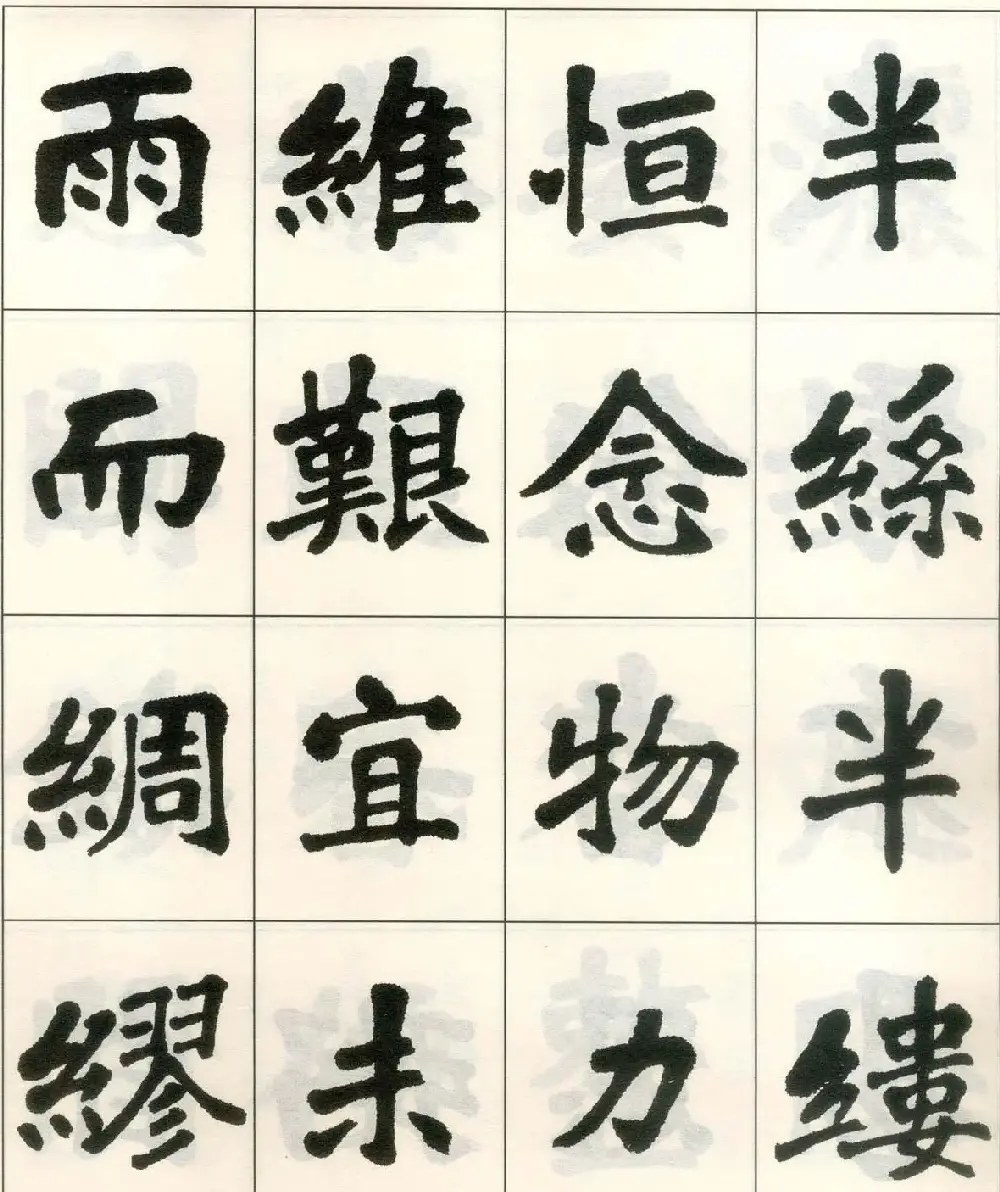 半絲半縷
恒念物力
維艱宜未
雨而綢繆